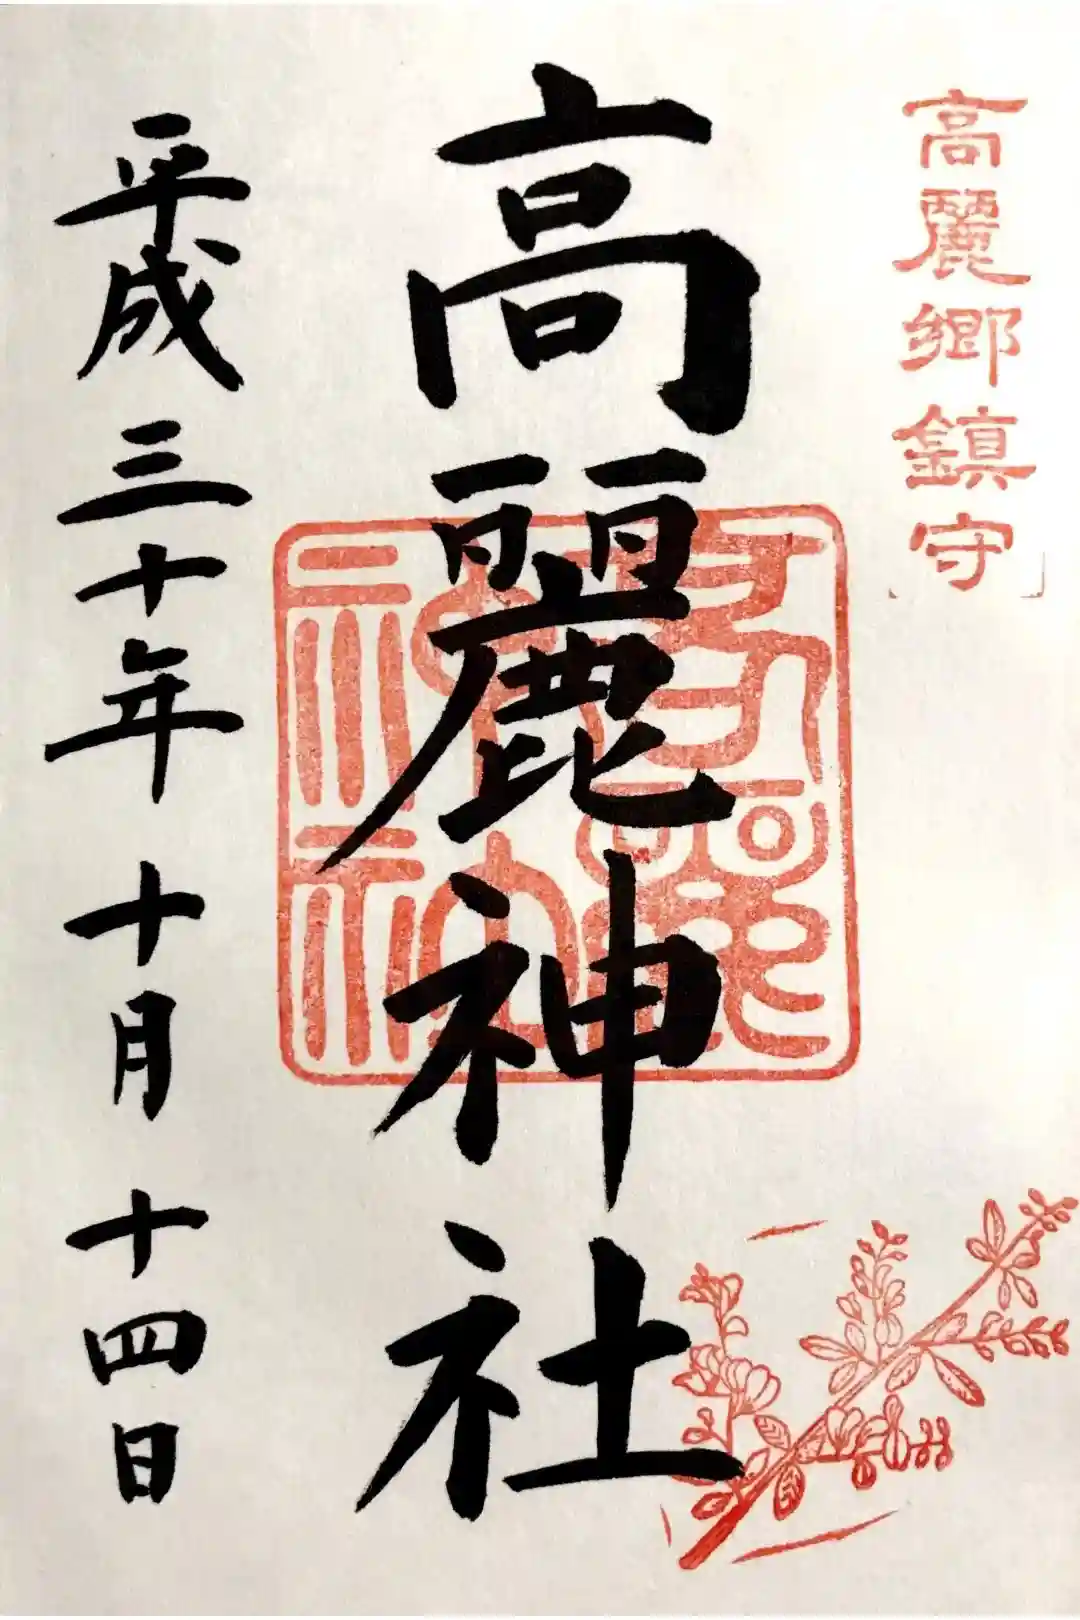 高麗郷鎮守
高麗神社
高麗神社
平成三十年十月十四日